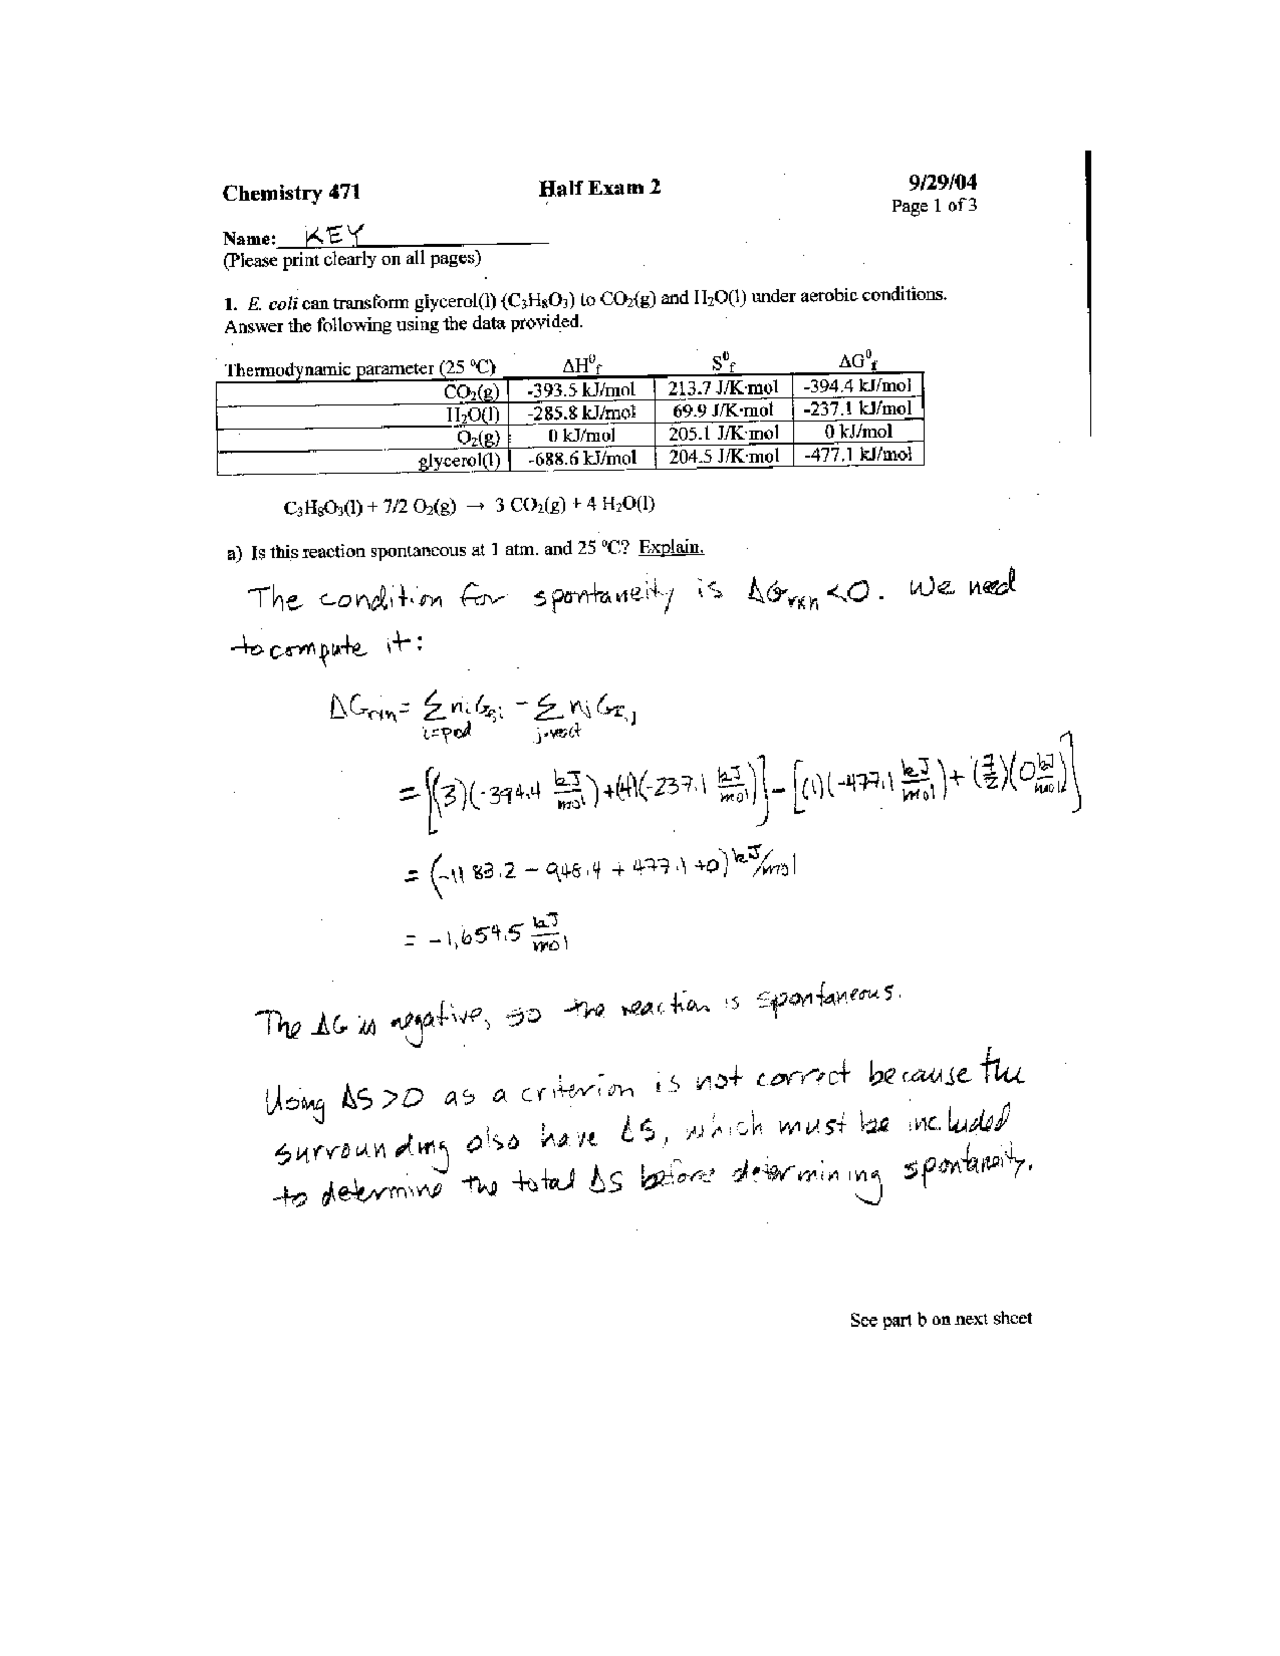 Chemistry 471 Half Exam 2 9/29/04
Page 1 of 3
Name: KEY
(Please print clearly on all pages)
1. E. coli can transform glycerol(l) (C₃H₈O₃) to CO₂(g) and H₂O(l) under aerobic conditions.
Answer the following using the data provided.
Thermodynamic parameter (25 ⁰C) ΔH⁰f S⁰f ΔG⁰f
CO₂(g) -393.5 kJ/mol 213.7 J/K·mol -394.4 kJ/mol
H₂O(l) -285.8 kJ/mol 69.9 J/K·mol -237.1 kJ/mol
O₂(g) 0 kJ/mol 205.1 J/K·mol 0 kJ/mol
glycerol(l) -688.6 kJ/mol 204.5 J/K·mol -477.1 kJ/mol
C₃H₈O₃(l) + 7/2 O₂(g) → 3 CO₂(g) + 4 H₂O(l)
a) Is this reaction spontaneous at 1 atm. and 25 ⁰C? Explain.
The condition for spontaneity is ΔGrxn<0. We need
to compute it:
ΔGrxn = Σ niGf,i - Σ njGf,j
i=prod j=react
= [(3)(-394.4 kJ/mol)+(4)(-237.1 kJ/mol)] - [(1)(-477.1 kJ/mol)+(7/2)(0 kJ/mol)]
= (-1183.2 - 948.4 + 477.1 +0) kJ/mol
= -1,654.5 kJ/mol
The ΔG is negative, so the reaction is spontaneous.
Using ΔS>0 as a criterion is not correct because the
surrounding also have ΔS, which must be included
to determine the total ΔS before determining spontaneity.
See part b on next sheet